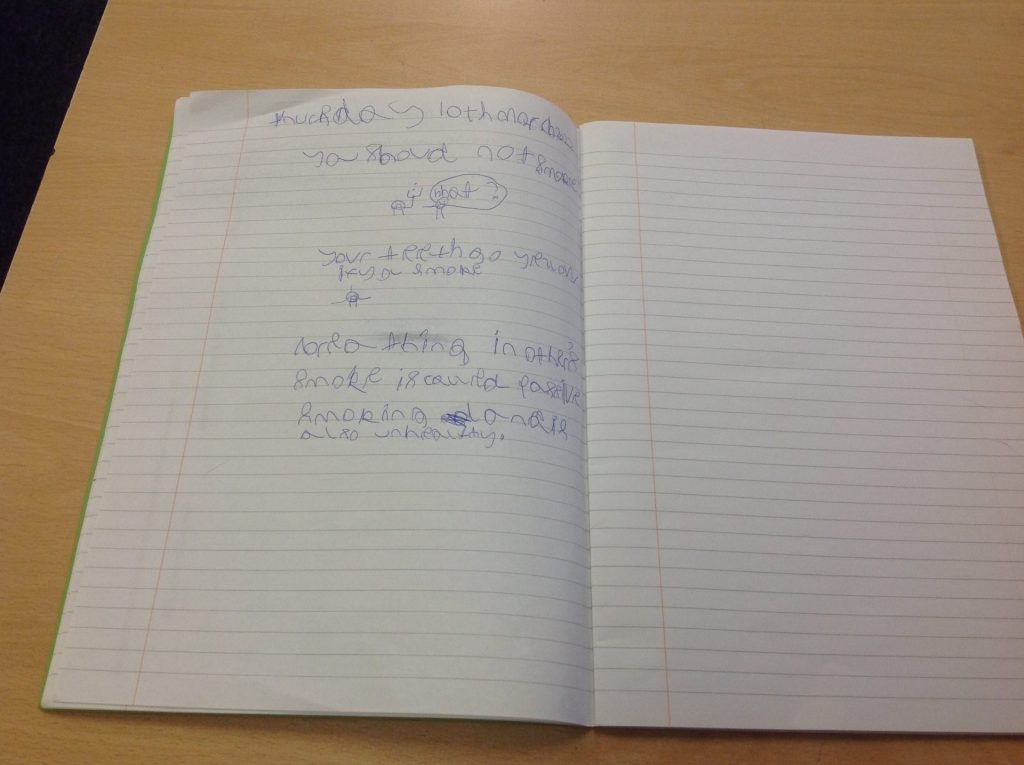 thursday 10th march
you should not smoke
what?
your teeth go yellow
if you smoke
breathing in other's
smoke is called passive
smoking and is
also unhealthy.